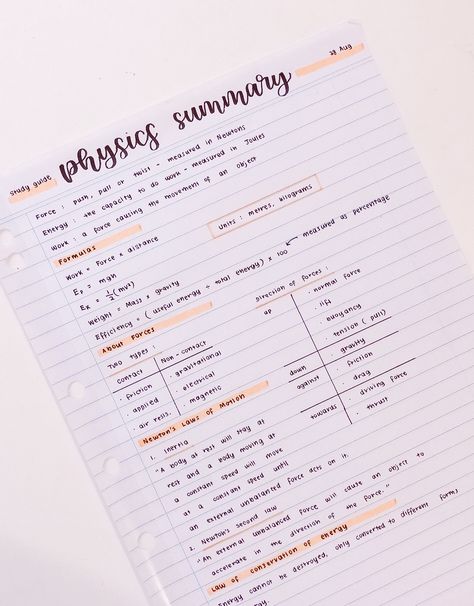 28 Aug
study guide
physics summary
Force : push, pull or twist - measured in Newtons
Energy : the capacity to do work - measured in Joules
Work : a force causing the movement of an object
Formulas
Units : metres, kilograms
Work = Force x distance
Ep = mgh
EK = ½(mv²)
Weight = Mass x gravity
Efficiency = ( useful energy ÷ total energy) x 100 ← measured as percentage
About Forces
Two types :
contact
Non-contact
· friction
· applied
· air resis.
· gravitational
· electrical
· magnetic
Direction of forces :
up
· normal force
· lift
· buoyancy
· tension ( pull)
down
· gravity
against
· friction
· drag
towards
· driving force
· thrust
Newton's Laws of Motion
1. Inertia
"A body at rest will stay at
rest and a body moving at
a constant speed will move
at a constant speed until
an external unbalanced force acts on it.
2. Newton's second law
"An external unbalanced force will cause an object to
accelerate in the direction of the force."
Law of conservation of energy
Energy cannot be destroyed, only converted to different forms